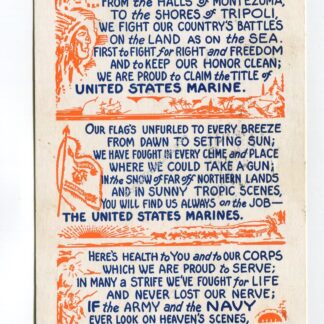 FROM THE HALLS OF MONTEZUMA,
TO THE SHORES OF TRIPOLI,
WE FIGHT OUR COUNTRY'S BATTLES
ON THE LAND AS ON THE SEA.
FIRST TO FIGHT FOR RIGHT AND FREEDOM
AND TO KEEP OUR HONOR CLEAN;
WE ARE PROUD TO CLAIM THE TITLE OF
UNITED STATES MARINE.
OUR FLAG'S UNFURLED TO EVERY BREEZE
FROM DAWN TO SETTING SUN;
WE HAVE FOUGHT IN EVERY CLIME AND PLACE
WHERE WE COULD TAKE A GUN;
IN THE SNOW OF FAR OFF NORTHERN LANDS
AND IN SUNNY TROPIC SCENES,
YOU WILL FIND US ALWAYS ON THE JOB—
THE UNITED STATES MARINES.
HERE'S HEALTH TO YOU AND TO OUR CORPS
WHICH WE ARE PROUD TO SERVE;
IN MANY A STRIFE WE'VE FOUGHT FOR LIFE
AND NEVER LOST OUR NERVE;
IF THE ARMY AND THE NAVY
EVER LOOK ON HEAVEN'S SCENES,